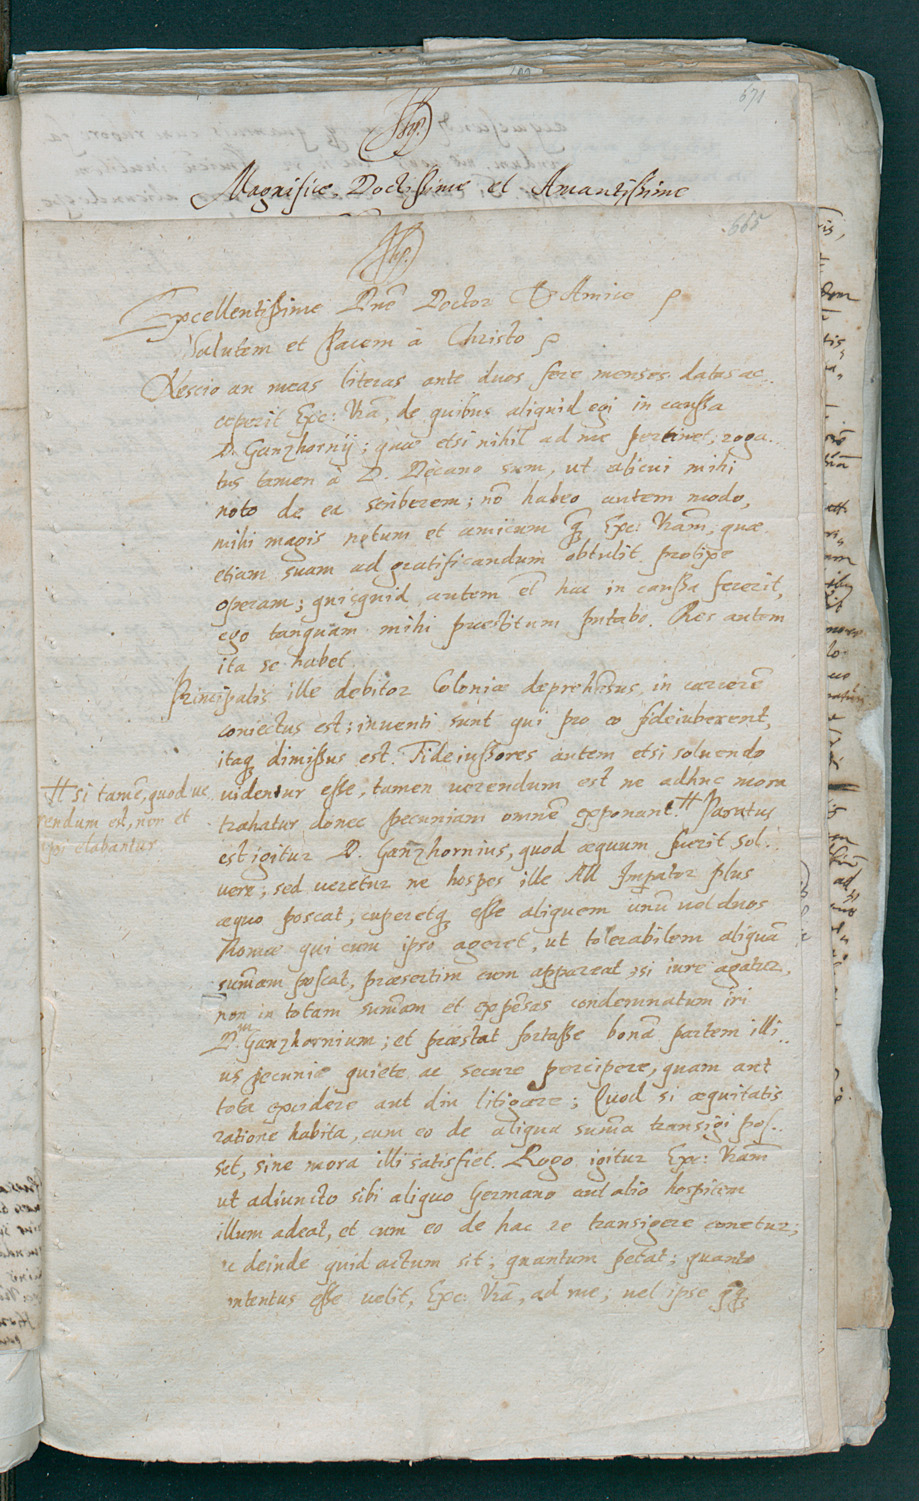 671
Magnifice Doctissime et Amantissime
665
Excellentissime Dnē Doctor & Amice
Salutem et Pacem à Christo
Nescio an meas literas ante duos fere menses datas ac
ceperit Exc: Vrā, de quibus aliquid egi in caussa
D. Ganzhornij; quae etsi nihil ad me pertinet, roga
tus tamen à D. Decano sum, ut alicui mihi
noto de ea scriberem; nō habeo autem modo,
mihi magis notum et amicum Exc: Vram, quae
etiam suam ad gratificandum obtulit prolixe
operam; quicquid autem hac in caussa fecerit,
ego tanquam mihi praestitum putabo. Res autem
ita se habet.
Principalis ille debitor Coloniae deprehēsus, in carcerē
coniectus est; inventi sunt qui pro eo fideiuberent,
itaq dimissus est. Fideiussores autem etsi soluendo
videntur esse, tamen verendum est ne adhuc mora
trahatur donec pecuniam omnē exponant. # Paratus
# si tamē, quod ve
rendum est, non et
ipsi elabantur
est igitur D. Ganzhornius, quod aequum fuerit sol
vere; sed veretur ne hospes ille All Imperator plus
aequo poscat; cuperetq esse aliquem unū vel duos
Romae qui cum ipso ageret, ut tolerabilem aliquā
sumam poscat, praesertim cum appareat, si iure agatur,
non in totam sumam et expēsas condemnatum iri
D.m Ganzhornium; et praestat fortasse bonā partem illi
us pecuniae quiete ac secure percipere, quam aut
tota excidere aut diu litigare; Quod si aequitatis
ratione habita, cum eo de aliqua suma transigi pos
set, sine mora illi satisfiet. Rogo igitur Exc: Vram
ut adiuncto sibi aliquo Germano aut alio hospitem
illum adeat, et cum eo de hac re transigere conetur;
deinde quid actum sit; quantum petat; quanto
contentus esse velit, Exc: Vrā, ad me; vel ipse